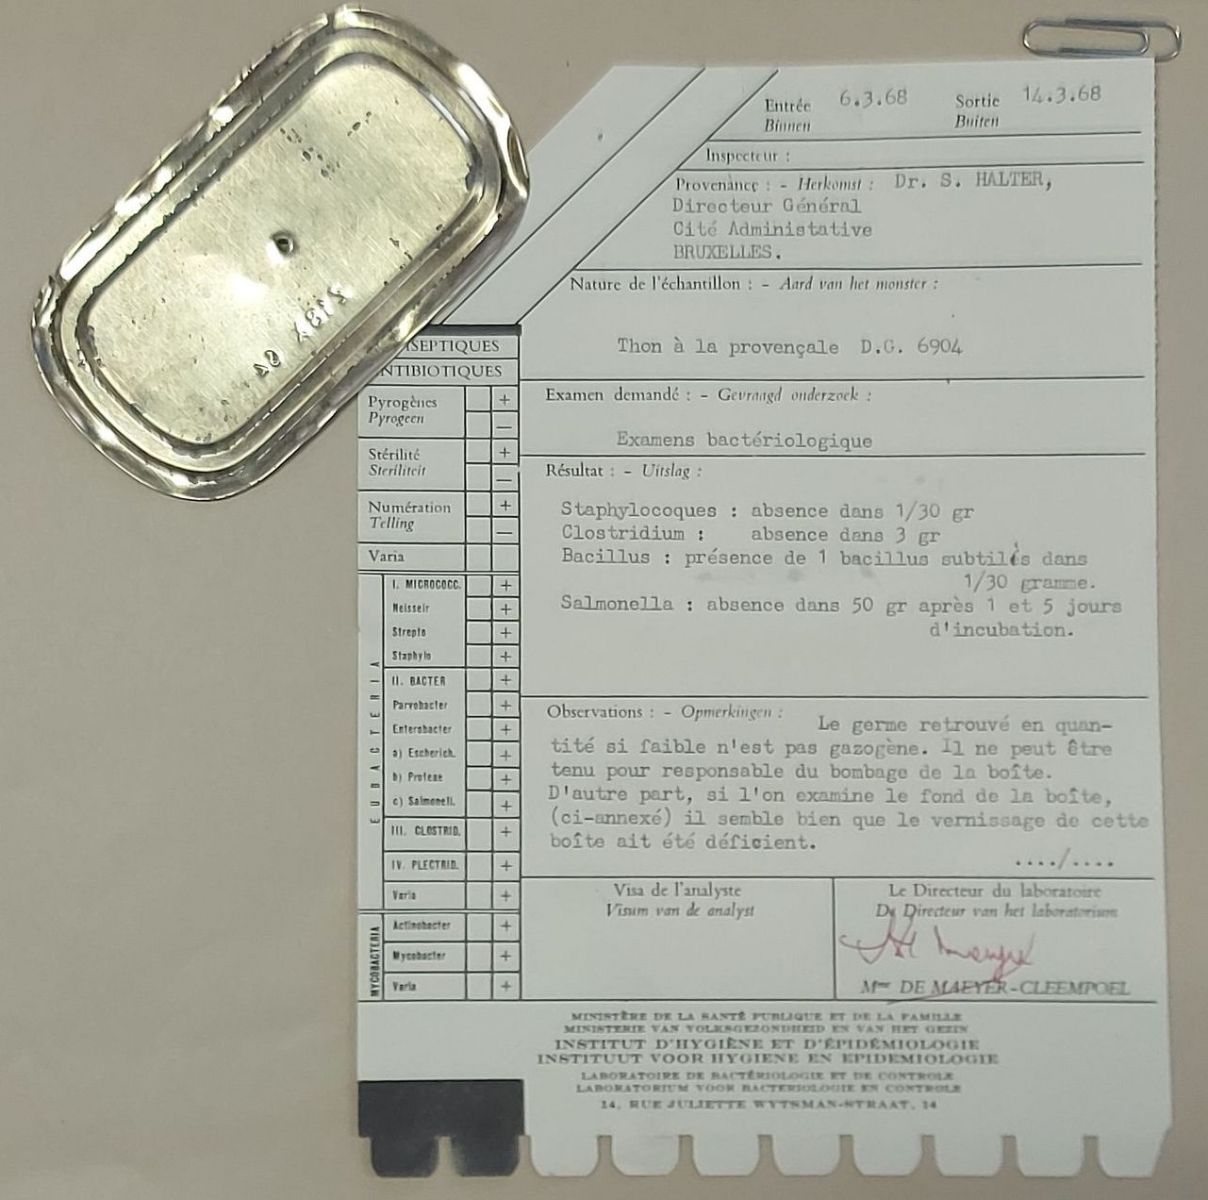 Entrée 6.3.68 Sortie 14.3.68
Binnen Buiten
Inspecteur :
Provenance : - Herkomst : Dr. S. HALTER,
Directeur Général
Cité Administative
BRUXELLES.
Nature de l'échantillon : - Aard van het monster :
Thon à la provençale D.G. 6904
Examen demandé : - Gevraagd onderzoek :
Examens bactériologique
Résultat : - Uitslag :
Staphylocoques : absence dans 1/30 gr
Clostridium : absence dans 3 gr
Bacillus : présence de 1 bacillus subtilis dans
1/30 gramme.
Salmonella : absence dans 50 gr après 1 et 5 jours
d'incubation.
Observations : - Opmerkingen : Le germe retrouvé en quan-
tité si faible n'est pas gazogène. Il ne peut être
tenu pour responsable du bombage de la boîte.
D'autre part, si l'on examine le fond de la boîte,
(ci-annexé) il semble bien que le vernissage de cette
boîte ait été déficient.
..../....
Visa de l'analyste
Visum van de analyst
Le Directeur du laboratoire
De Directeur van het laboratorium
Mme DE MAEYER-CLEEMPOEL
SEPTIQUES
NTIBIOTIQUES
Pyrogènes +
Pyrogeen —
Stérilité +
Steriliteit —
Numération +
Telling —
Varia
EUBACTERIA
I. MICROCOCC. +
Neisseir +
Strepto +
Staphylo +
II. BACTER +
Parvobacter +
Enterobacter +
a) Escherich. +
b) Proteae +
c) Salmonell. +
III. CLOSTRID. +
IV. PLECTRID. +
Varia +
MYCOBACTERIA
Actinobacter +
Mycobacter +
Varia +
MINISTÈRE DE LA SANTÉ PUBLIQUE ET DE LA FAMILLE
MINISTERIE VAN VOLKSGEZONDHEID EN VAN HET GEZIN
INSTITUT D'HYGIÈNE ET D'ÉPIDÉMIOLOGIE
INSTITUUT VOOR HYGIENE EN EPIDEMIOLOGIE
LABORATOIRE DE BACTÉRIOLOGIE ET DE CONTROLE
LABORATORIUM VOOR BACTERIOLOGIE EN CONTROLE
14, RUE JULIETTE WYTSMAN-STRAAT, 14